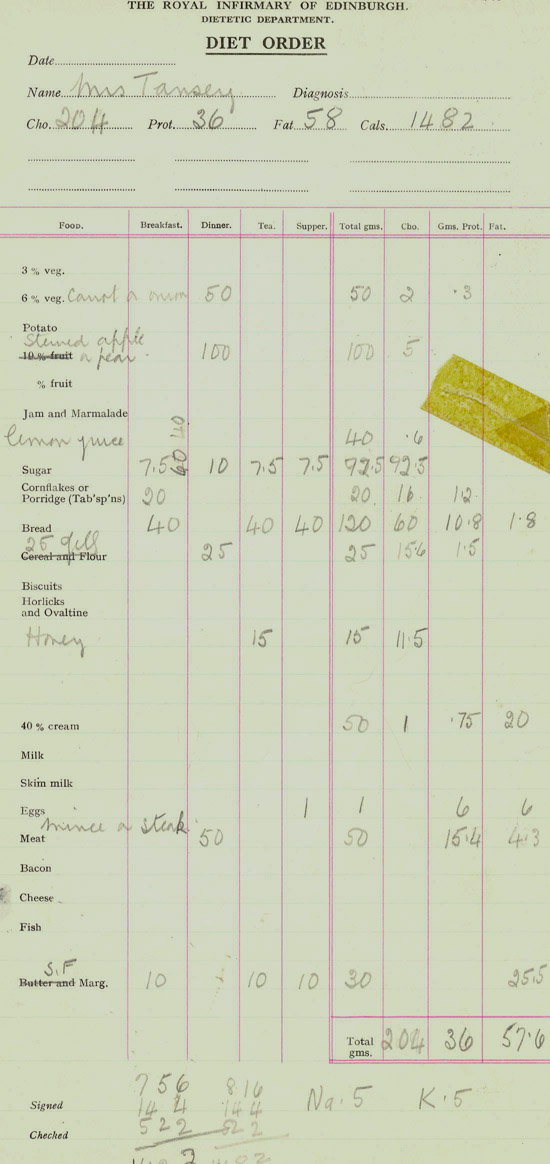 THE ROYAL INFIRMARY OF EDINBURGH.
DIETETIC DEPARTMENT.
DIET ORDER
Date
Name Mrs Tansey Diagnosis
Cho. 204 Prot. 36 Fat 58 Cals. 1482
FOOD. Breakfast. Dinner. Tea. Supper. Total gms. Cho. Gms. Prot. Fat.
3 % veg.
6 % veg. Carrot or onion 50 50 2 .3
Potato
Stewed apple
10 % fruit or pear 100 100 5
% fruit
Jam and Marmalade
lemon juice 40 40 .6
Sugar 7.5 60 10 7.5 7.5 92.5 92.5
Cornflakes or
Porridge (Tab'sp'ns) 20 20 16 1.2
Bread 40 40 40 120 60 10.8 1.8
Cereal and Flour 25 25 15.6 1.5
Biscuits
Horlicks
and Ovaltine
Honey 15 15 11.5
40 % cream 50 1 .75 20
Milk
Skim milk
Eggs 1 1 6 6
mince or steak
Meat 50 50 15.4 4.3
Bacon
Cheese
Fish
S.F
Butter and Marg. 10 10 10 30 25.5
Total gms. 204 36 57.6
756 816
Signed 144 144 Na .5 K .5
Checked 522 522